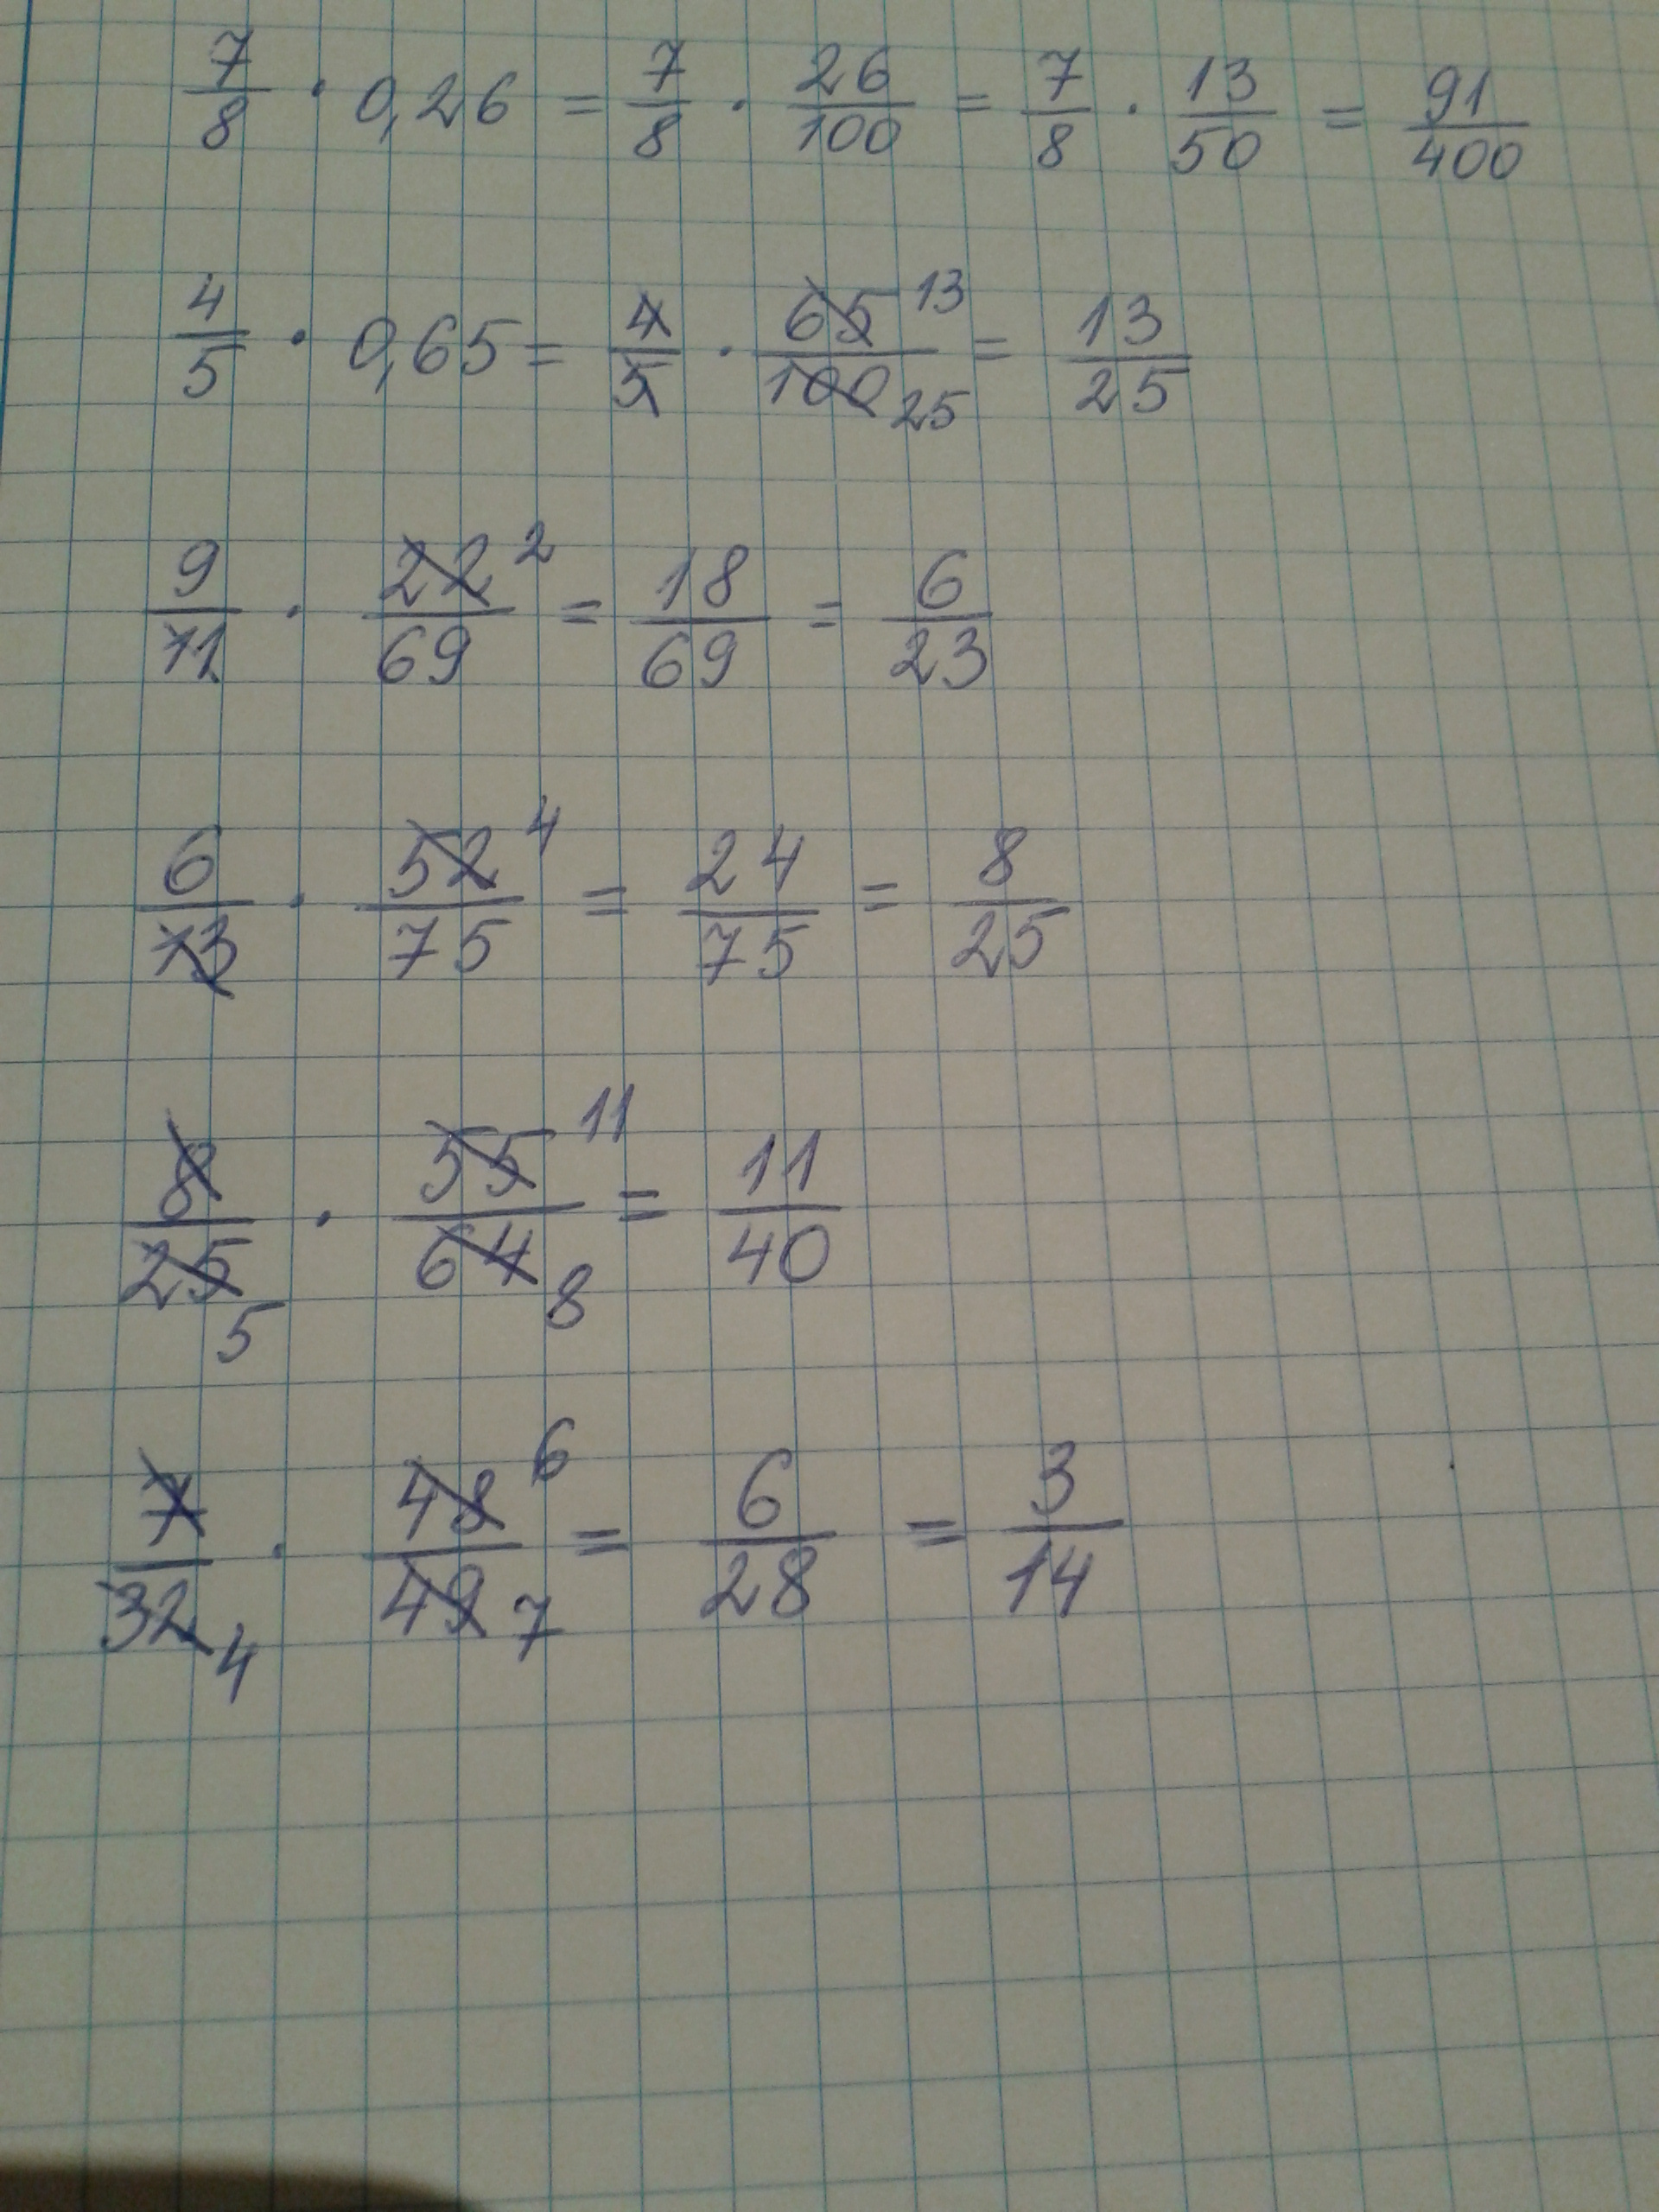 7/8 · 0,26 = 7/8 · 26/100 = 7/8 · 13/50 = 91/400
4/5 · 0,65 = 4/5 · 65/100 13 25 = 13/25
9/11 · 22/69 2 = 18/69 = 6/23
6/13 · 52/75 4 = 24/75 = 8/25
8/25 5 · 55/64 11 8 = 11/40
7/32 4 · 48/49 6 7 = 6/28 = 3/14